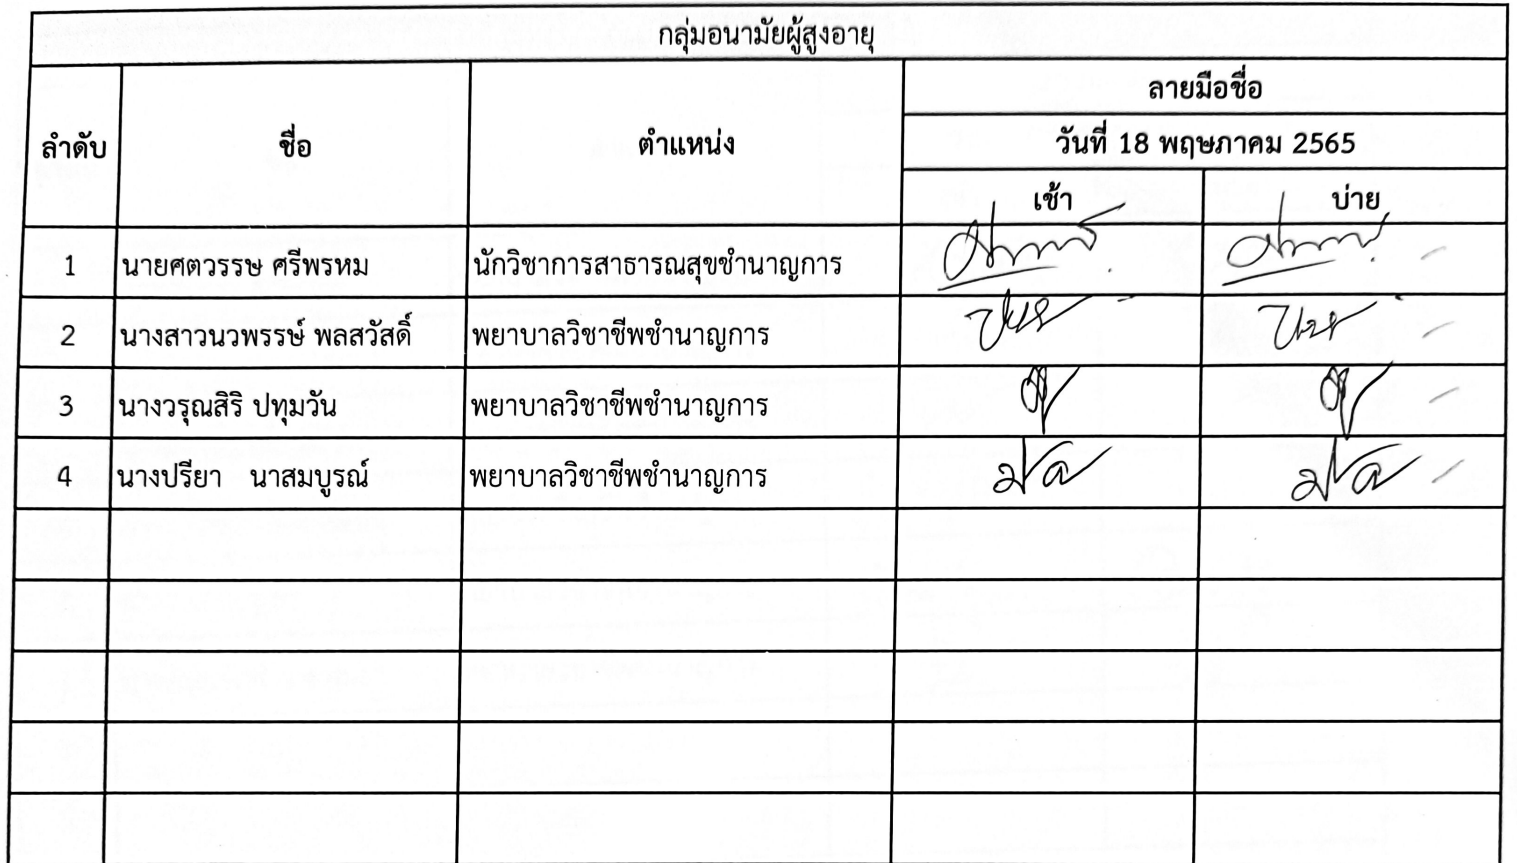 กลุ่มอนามัยผู้สูงอายุ
ลำดับ ชื่อ ตำแหน่ง ลายมือชื่อ
วันที่ 18 พฤษภาคม 2565
เช้า บ่าย
1 นายศตวรรษ ศรีพรหม นักวิชาการสาธารณสุขชำนาญการ
2 นางสาวนวพรรษ์ พลสวัสดิ์ พยาบาลวิชาชีพชำนาญการ
3 นางวรุณสิริ ปทุมวัน พยาบาลวิชาชีพชำนาญการ
4 นางปรียา นาสมบูรณ์ พยาบาลวิชาชีพชำนาญการ